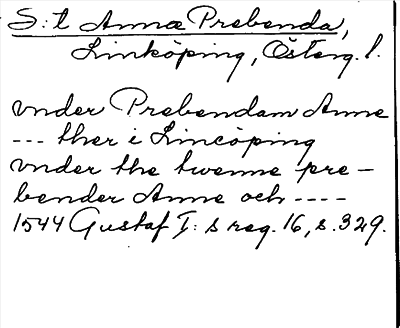 S:t Annæ Prebenda,
Linköping, Österg.l.
vnder Prebendam Anne
--- ther i Lincöping
vnder the twenne pre-
bender Anne och ----
1544 Gustaf I:s reg. 16, s. 329.